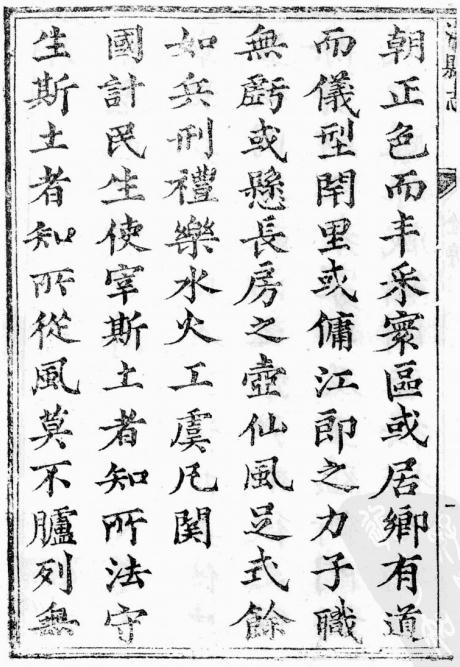 縣志
朝正色而丰采寰區或居鄉有道
而儀型閈里或傭江郎之力子職
無虧或懸長房之壺仙風足式餘
如兵刑禮樂水火工虞凡関
國計民生使宰斯土者知所法守
生斯土者知所從風莫不臚列無